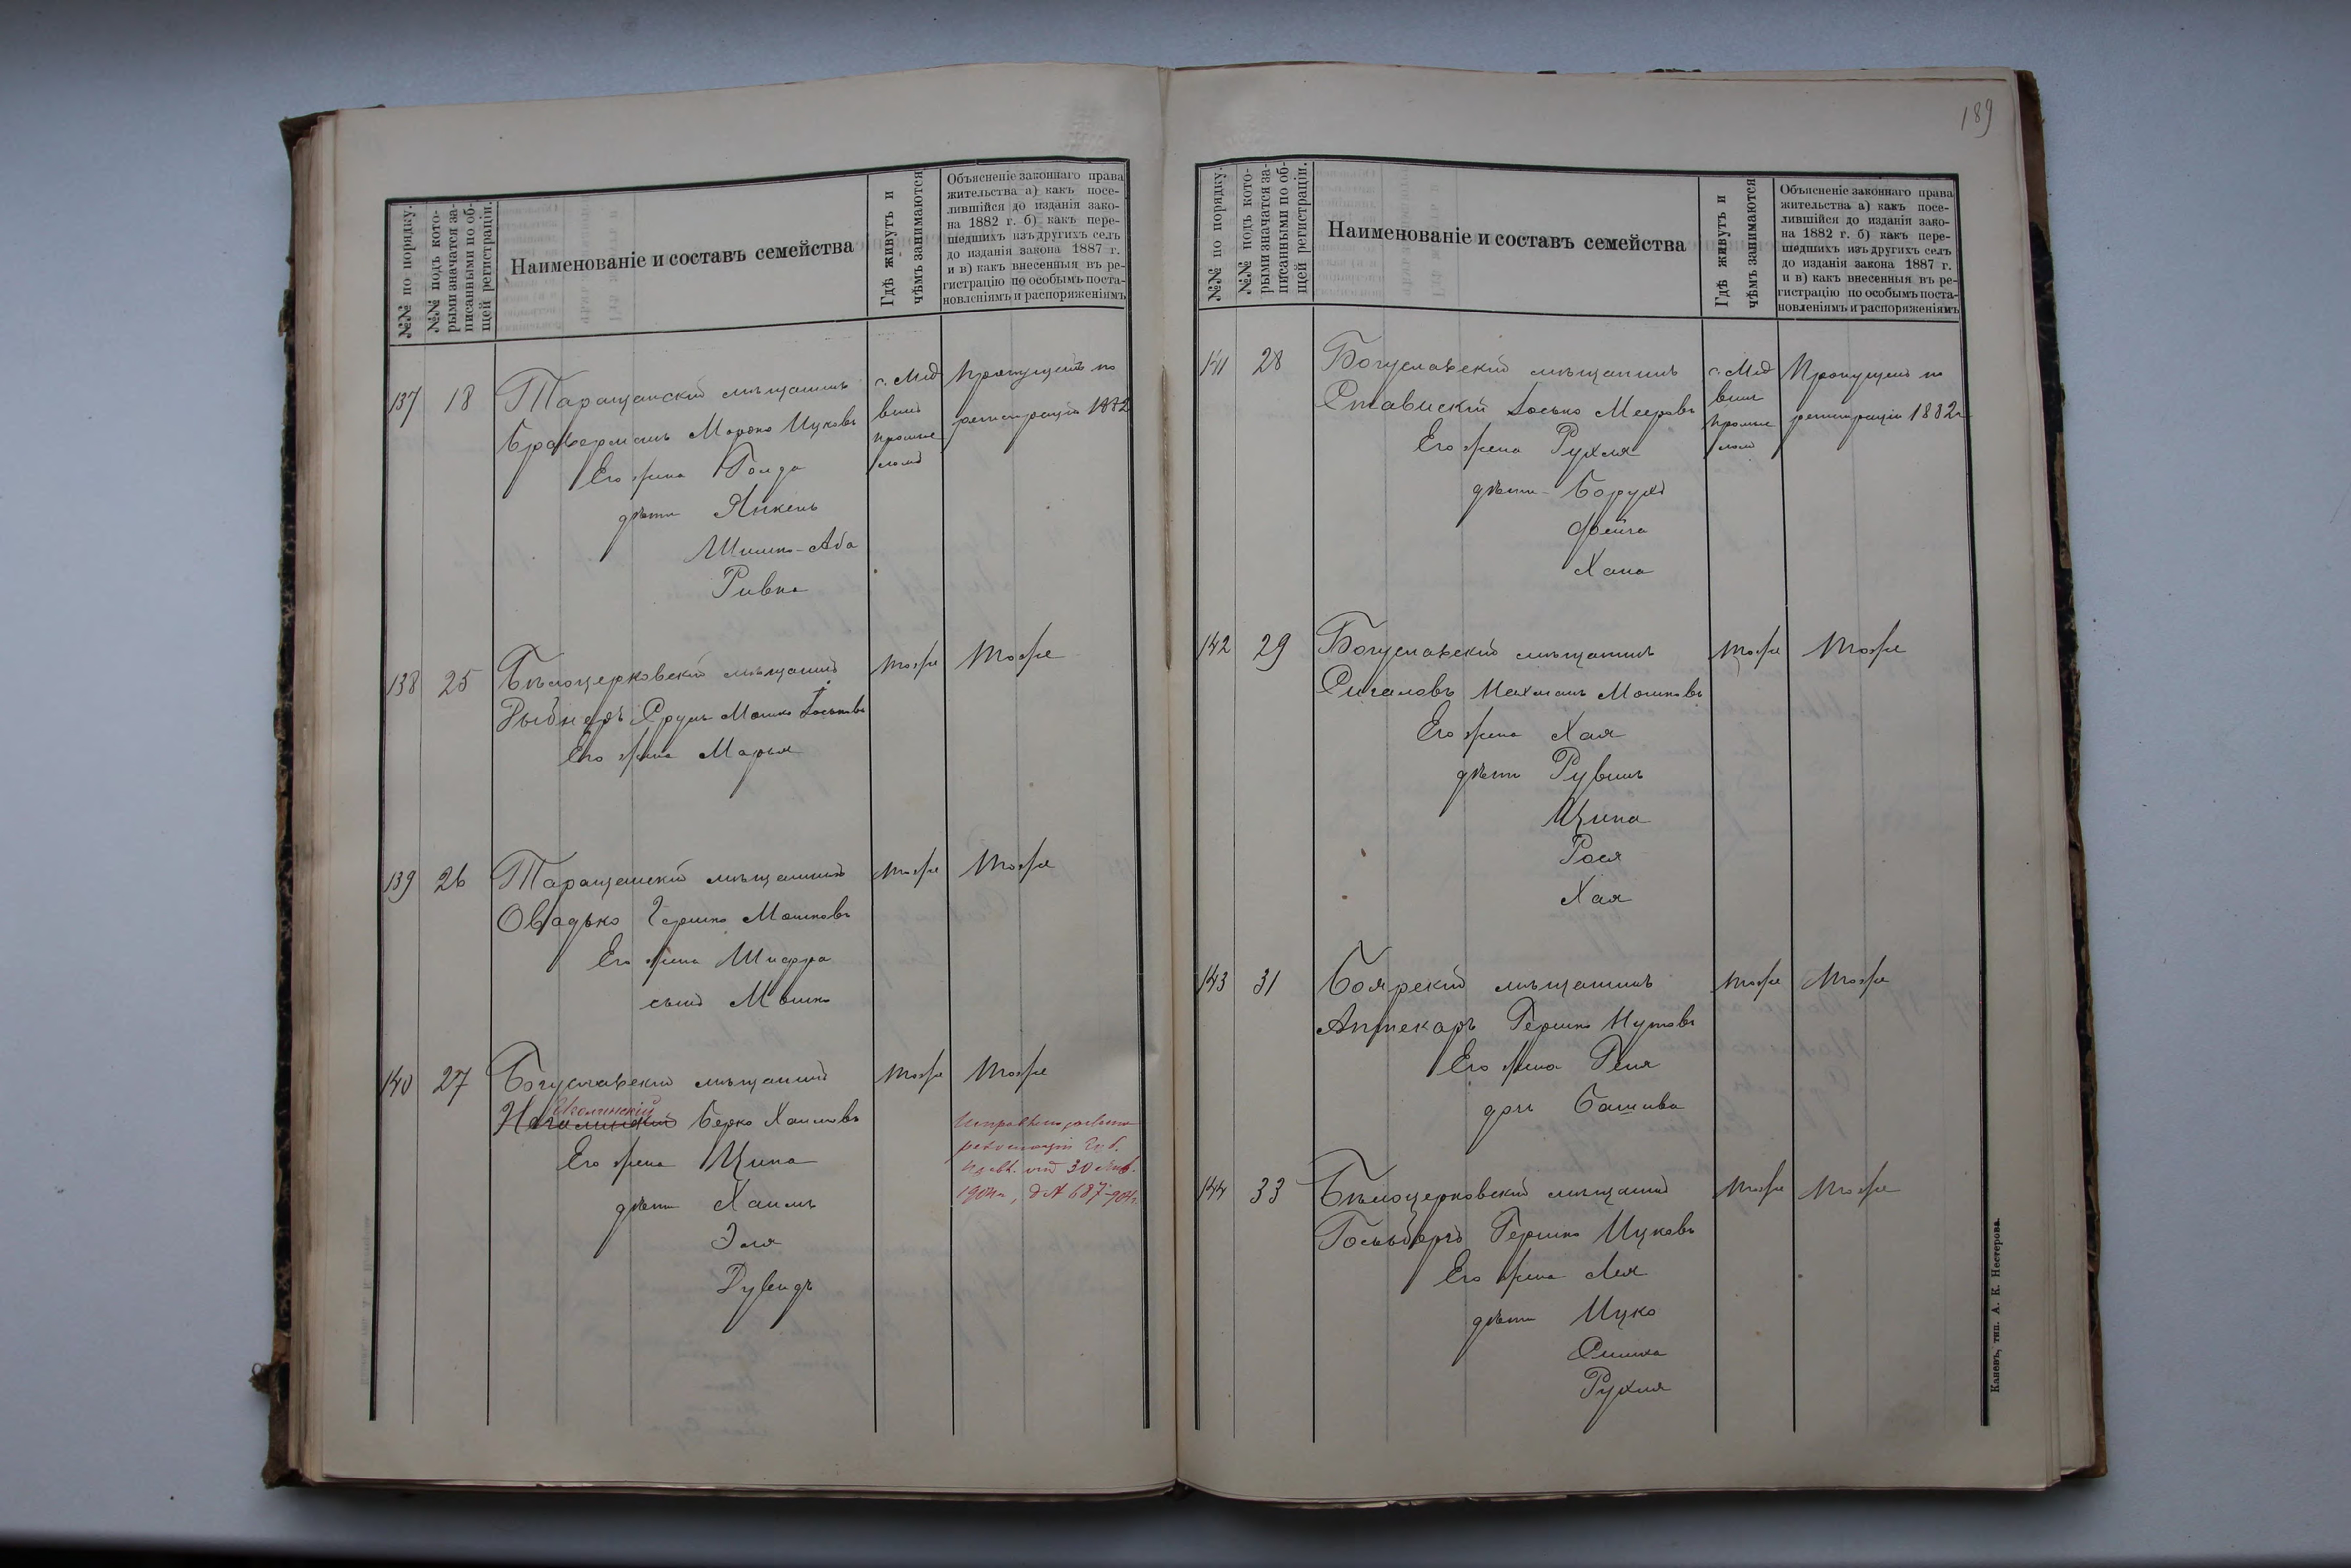 №№ по порядку.
№№ подъ кото-
рыми значатся за-
писанными по об-
щей регистраціи.
Наименованіе и составъ семейства
Гдѣ живутъ и
чѣмъ занимаются
Объясненіе законнаго права
жительства а) какъ посе-
лившійся до изданія зако-
на 1882 г. б) какъ пере-
шедшихъ изъ другихъ селъ
до изданія закона 1887 г.
и в) какъ внесенныя въ ре-
гистрацію по особымъ поста-
новленіямъ и распоряженіямъ
137 18 Таращанскій мѣщанинъ
Браверманъ Мордко Ицковъ
Его жена Голда
дѣти Янкель
Шимко-Аба
Ривка
с. Мед
винъ
промыс
ломъ
Пропущенъ по
регистраціи 1882
138 25 Бѣлоцерковскій мѣщанинъ тоже тоже
Рыбнеръ Сруль Мошко Іоськовъ
Его жена Марья
139 26 Таращанскій мѣщанинъ тоже тоже
Овадько Гершко Мошковъ
Его жена Шифра
сынъ Мошко
140 27 Богуславскій мѣщанинъ тоже тоже
Берко Хаимовъ
Его жена Ципа
дѣти Хаимъ
Эля
Дувидъ
30
190 г., д № 687-904г.
189
№№ по порядку.
№№ подъ кото-
рыми значатся за-
писанными по об-
щей регистраціи.
Наименованіе и составъ семейства
Гдѣ живутъ и
чѣмъ занимаются
Объясненіе законнаго права
жительства а) какъ посе-
лившійся до изданія зако-
на 1882 г. б) какъ пере-
шедшихъ изъ другихъ селъ
до изданія закона 1887 г.
и в) какъ внесенныя въ ре-
гистрацію по особымъ поста-
новленіямъ и распоряженіямъ
141 28 Богуславскій мѣщанинъ
Ставискій Іосько Мееровъ
Его жена Рухля
дѣти - Борухъ
Фейга
Хана
с. Мед
винъ
промыс
ломъ
Пропущенъ по
регистраціи 1882г
142 29 Богуславскій мѣщанинъ тоже тоже
Сигаловъ Нахманъ Мошковъ
Его жена Хая
дѣти Рувинъ
Ципа
Рося
Хая
143 31 Боярскій мѣщанинъ тоже тоже
Аптекарь Гершко Нутовъ
Его жена Геня
дочь Башива
144 33 Бѣлоцерковскій мѣщанинъ тоже тоже
Гольбергъ Гершко Ицковъ
Его жена Лея
дѣти Ицко
Симха
Рухля
Каневъ, тип. А. К. Нестерова.